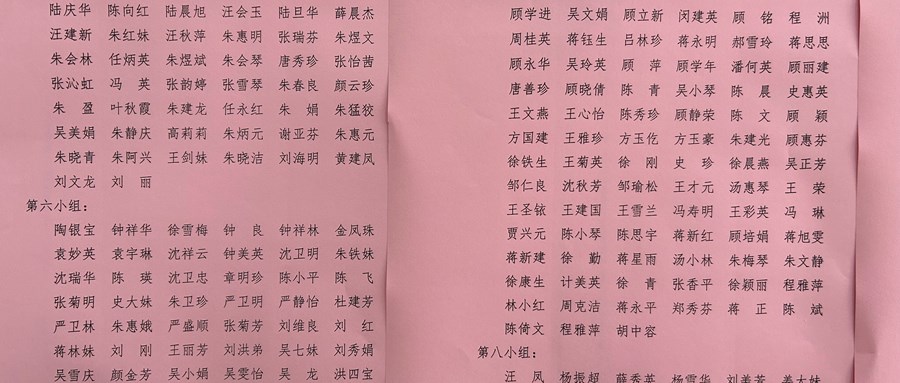 陆庆华 陈向红 陆晨旭 汪会玉 陆旦华 薛晨杰
汪建新 朱红妹 汪秋萍 朱惠明 张瑞芬 朱煜文
朱会林 任炳英 朱煜斌 朱会琴 唐秀珍 张怡茜
张沁虹 冯 英 张韵婷 张雪琴 朱春良 颜云珍
朱 盈 叶秋霞 朱建龙 任永红 朱 娟 朱猛狡
吴美娟 朱静庆 高莉莉 朱炳元 谢亚芬 朱惠元
朱晓青 朱阿兴 王剑妹 朱晓洁 刘海明 黄建凤
刘文龙 刘 丽
第六小组：
陶银宝 钟祥华 徐雪梅 钟 良 钟祥林 金凤珠
袁妙英 袁宇琳 沈祥云 钟美英 沈卫明 朱铁妹
沈瑞华 陈 瑛 沈卫忠 章明珍 陈小平 陈 飞
张菊明 史大妹 朱卫珍 严卫明 严静怡 杜建芳
严卫林 朱惠娥 严盛顺 张菊芳 刘维良 刘 红
蒋林妹 刘 刚 王丽芳 刘洪弟 吴七妹 刘秀娟
吴雪庆 颜金芳 吴小娟 吴雯怡 吴 龙 洪四宝
顾学进 吴文娟 顾立新 闵建英 顾 铭 程 洲
周桂英 蒋钰生 吕林珍 蒋永明 郝雪玲 蒋思思
顾永华 吴玲英 顾 萍 顾学年 潘何英 顾丽建
唐善珍 顾晓倩 陈 青 吴小琴 陈 晨 史惠英
王文燕 王心怡 陈秀珍 顾静荣 陈 文 顾 颖
方国建 王雅珍 方玉仡 方玉豪 朱建光 顾惠芬
徐铁生 王菊英 徐 刚 史 珍 徐晨燕 吴正芳
邹仁良 沈秋芳 邹瑜松 王才元 汤惠琴 王 荣
王圣铱 王建国 王雪兰 冯寿明 王彩英 冯 琳
贾兴元 陈小琴 陈思宇 蒋新红 顾培娟 蒋旭雯
蒋新建 徐 勤 蒋星雨 汤小林 朱梅琴 朱文静
徐康生 计美英 徐 青 张香平 徐颖丽 程雅萍
林小红 周克洁 蒋永平 郑秀芬 蒋 正 陈 斌
陈倚文 程雅萍 胡中容
第八小组：
汪 凤 杨振超 薛秀英 杨雪华 刘美芳 姜大妹